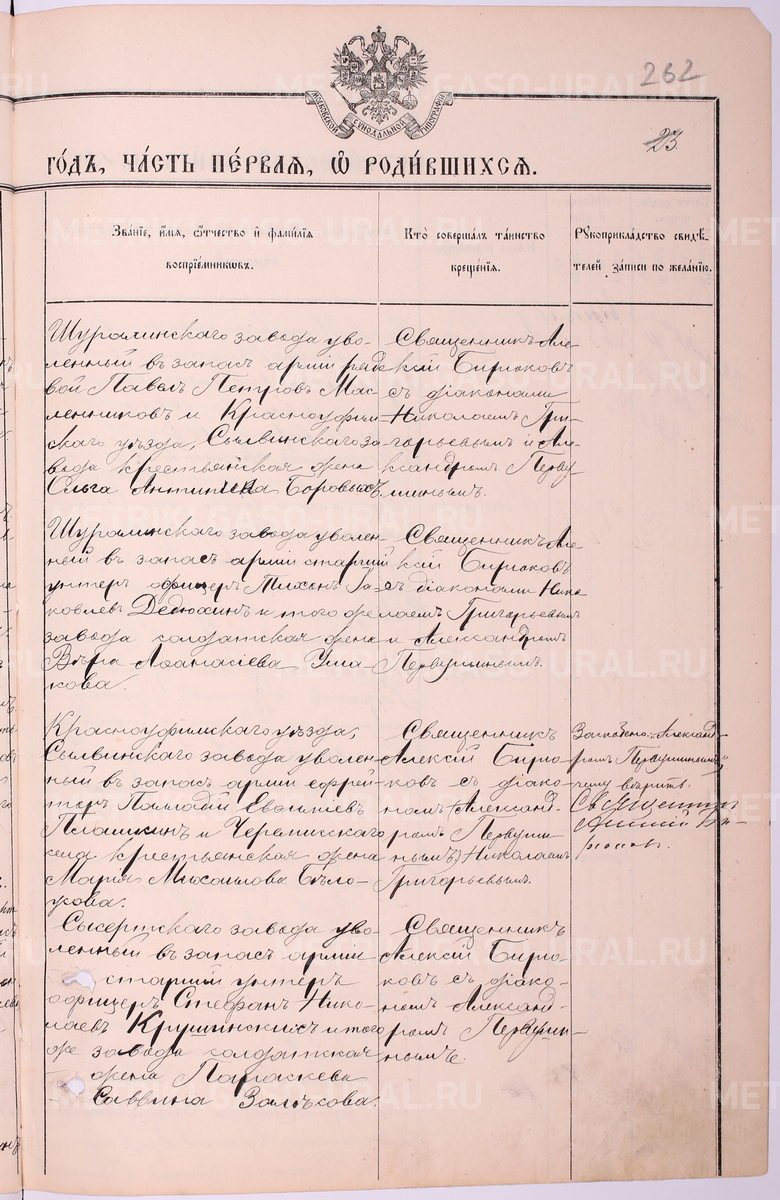 262
23
МОСКОВСКОЙ СѴНОДАЛЬНОЙ ТИПОГРАФІИ
го́дъ, ча́сть пе́рвая, ѡ҆ роди́вшихся.
Зва́ніе, и҆́мя, ѻ҆́тчество и҆ фами́лія
воспріе́мникѡвъ.
Кто̀ соверша́лъ та́инство
креще́нія.
Рꙋкоприкла́дство свидѣ́-
телей за́писи по жела́нію.
Шуралинскаго завода уво-
ленный въ запасъ арміи рядо
вой Павелъ Петровъ Мас-
ленниковъ и Красноуфим-
скаго уѣзда, Сылвинскаго за-
вода крестьянская жена
Ольга Боровыхъ
Священникъ Але
ксій Бирюковъ
съ діаконами
Николаемъ Гри-
горьевымъ и Але
ксандромъ Перву
шинымъ.
Шуралинскаго завода уволен
ный въ запасъ арміи старшій
унтеръ офицеръ Тихонъ Я-
ковлевъ Дедюхинъ и того же
завода солдатская жена
Вѣра Аѳанасіева Ума-
кова.
Священникъ Але
ксій Бирюковъ
съ діаконами Нико
лаемъ Григорьевымъ
и Александромъ
Первушинымъ.
Красноуфимскаго уѣзда,
Сылвинскаго завода уволен
ный въ запасъ арміи ефрей-
торъ Евѳиміевъ
Плашкинъ и Черемисскаго
села крестьянская жена
Марія Михаилова Бѣло-
усова.
Священникъ
Алексій Бирю-
ковъ съ діако-
номъ (Александ-
ромъ Первуши
нымъ) Николаемъ
Григорьевымъ.
Александ-
ромъ Первушинымъ,
вѣрить.
Священникъ
Алексій Би-
рюковъ.
Сысертскаго завода уво-
ленный въ запасъ арміи
старшій унтеръ
офицеръ Стефанъ Нико-
лаевъ Крушинскихъ и того
же завода солдатская
жена Параскева
Саввина Залѣсова.
Священникъ
Алексій Бирю
ковъ съ діако-
номъ Александ-
ромъ Первуши-
нымъ.
METRIKI.GASO-URAL.RU